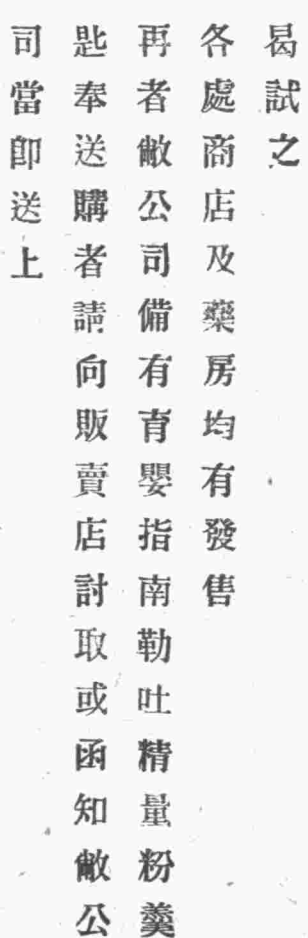 曷試之
各處商店及藥房均有發售
再者敝公司備有育嬰指南勒吐精量粉羹
匙奉送購者請向販賣店討取或函知敝公
司當卽送上